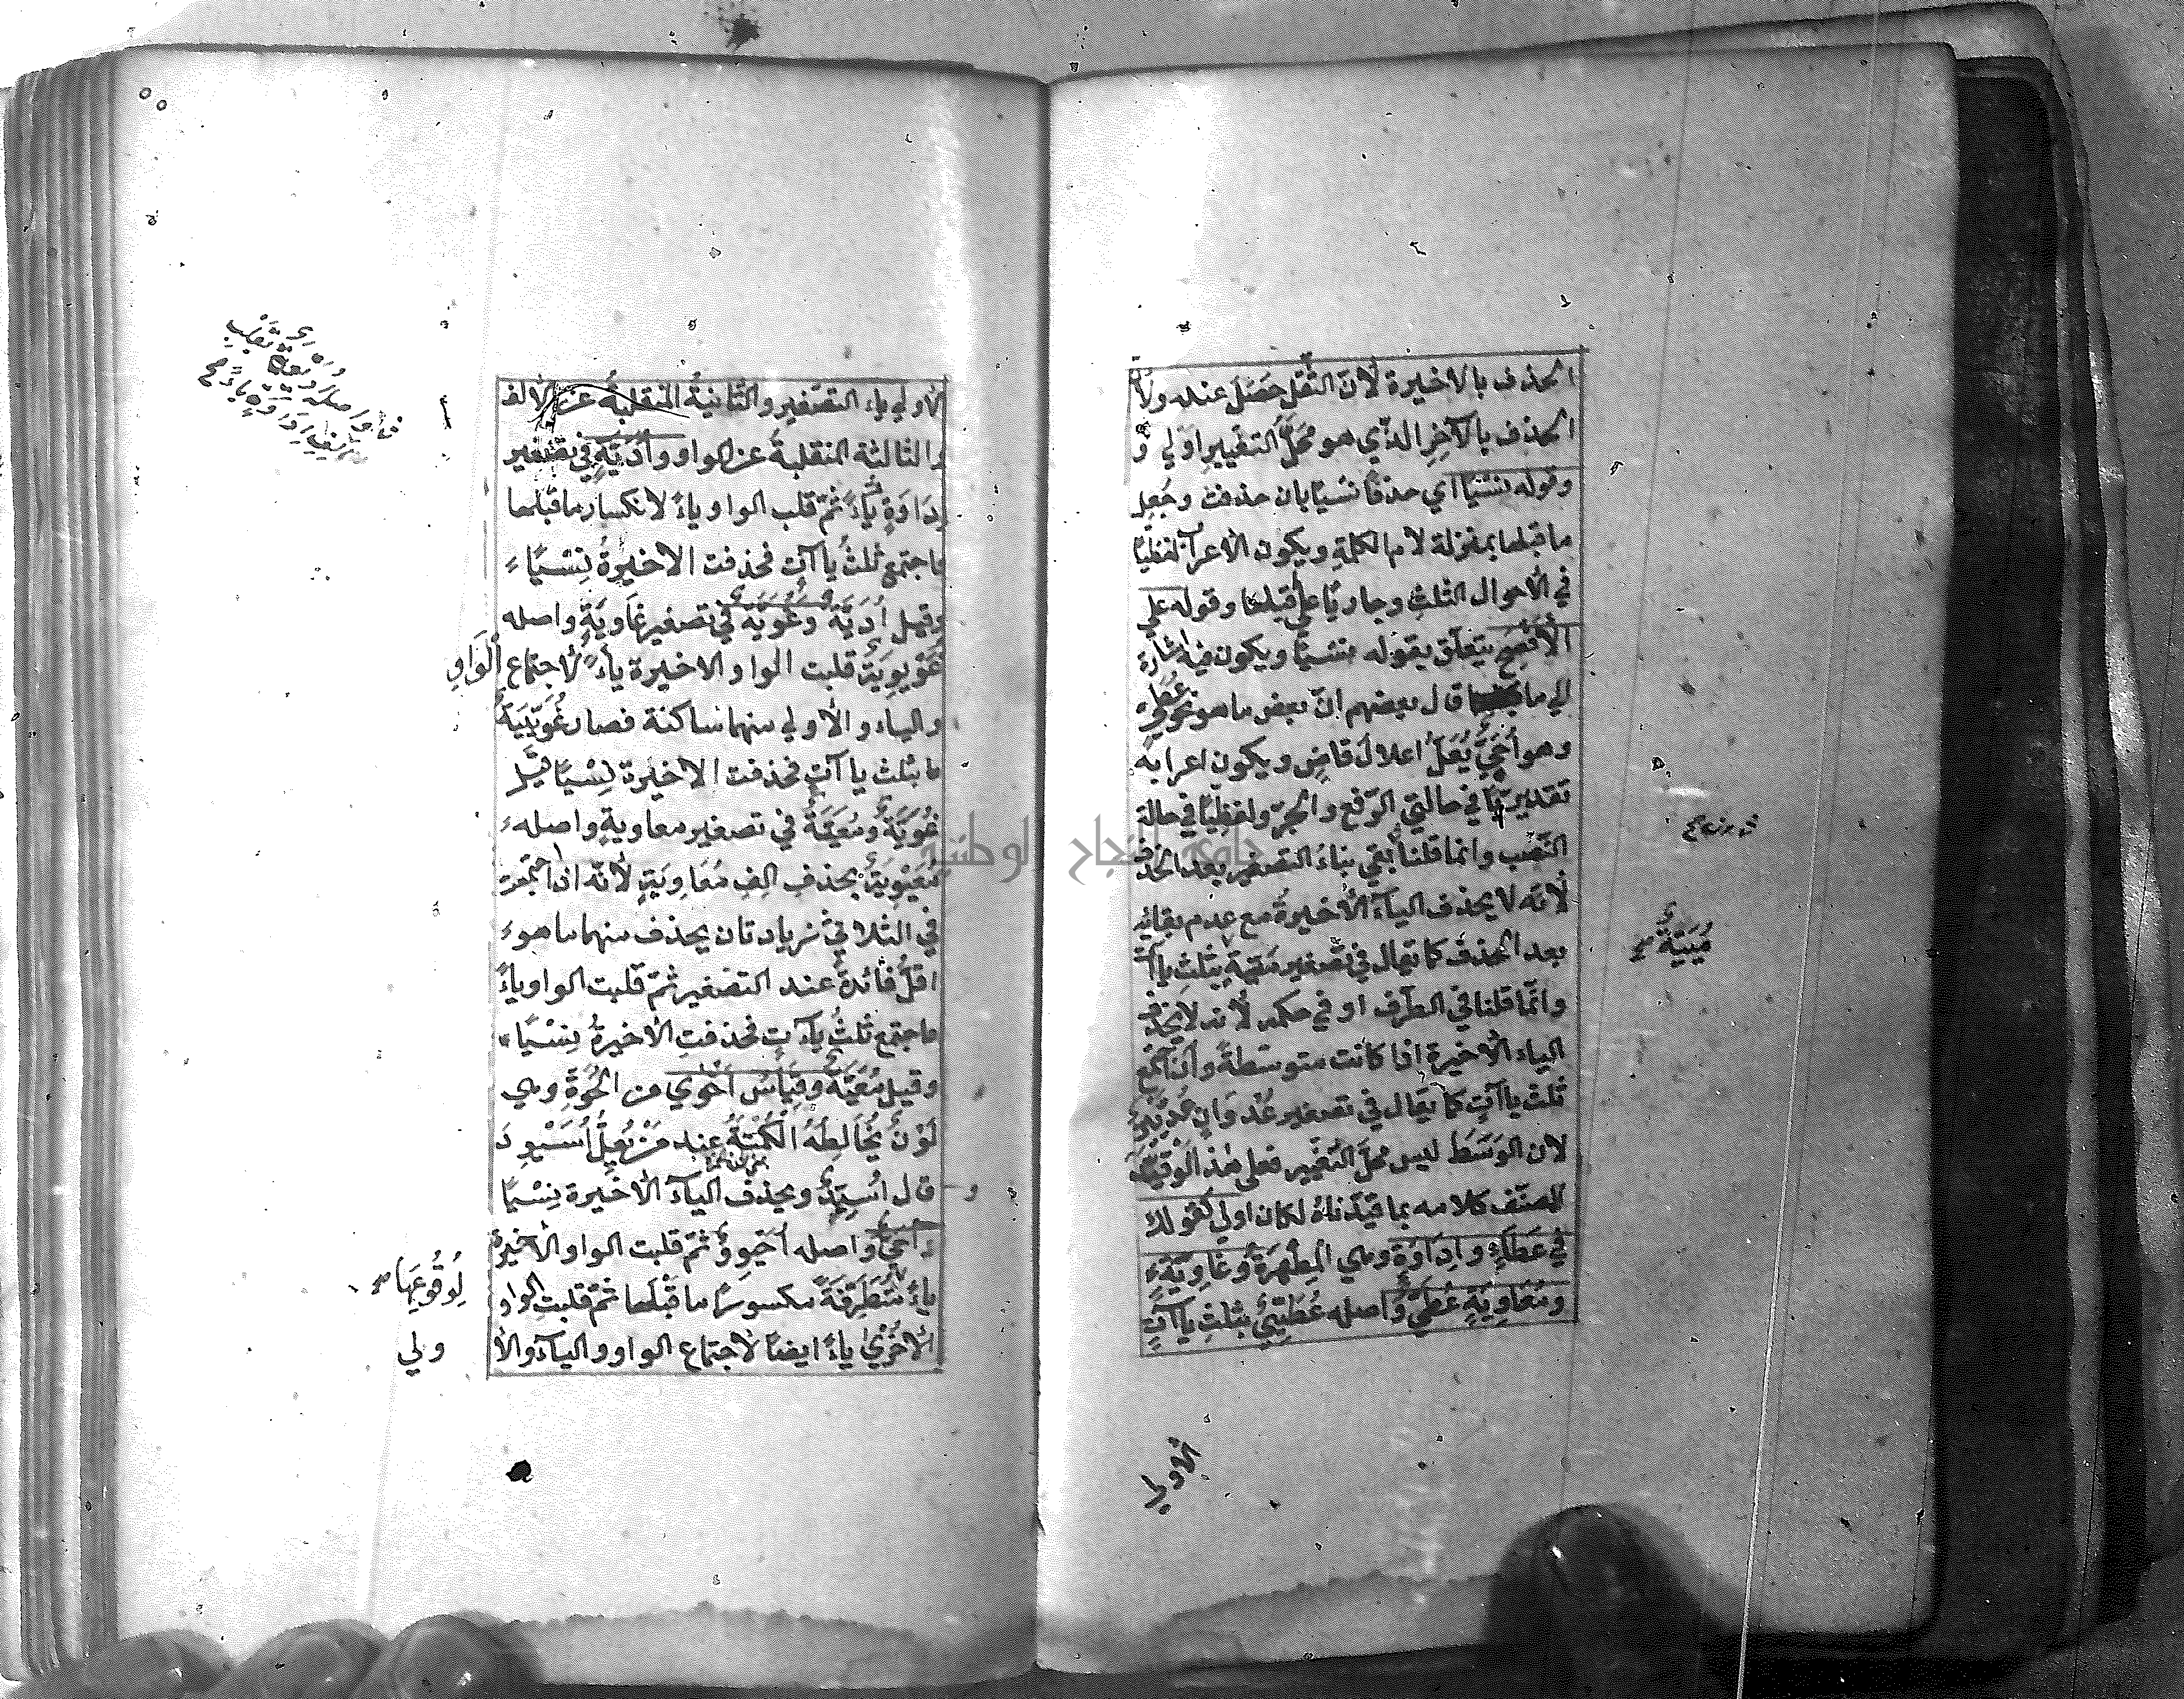 الحذف بالاخيرة لانّ الثّقل حصَلَ عنده ولانّ
الحذف بالآخِرِ الذّي هو محَلّ التغيير اولي و
وقوله نسْيًا اي حذفًا نسْيًا بان حذفت وجُعِل
ما قبلها بمنزلة لام الكلمةِ ويكون الاعراب لفظيًّا
في الاحوال الثلثِ وجاريًا علي ما قبلها وقوله علي
الأفصَحِ يتعلّق بقوله نسْيًا ويكون فيه اشارة
الي ما قال بعضهم انّ بعض ما هو نحو عُطيّ
وهو أُحَيّ يُعَلّ اعلالَ قاضٍ ويكون اعرابه
تقديريًّا في حالتي الرّفع والجرّ ولفظيًّا في حالة
النّصب وانما قلنا بقي بناءُ التصغير بعد الحذف
لانّه لا يحذف الياءُ الاخيرةُ مع عدم بقائه
بعد الحذف كما يقال في تصغير ميّة بثلثِ ياآت
مُيَيّةٌ صح
وانّما قلنا في الطّرف او في حكمه لانه لا يحذف
الياء الاخيرة اذا كانت متوسّطةً وان اجتمع
ثلث ياآتٍ كما يقال في تصغير عُدْوَانٍ
لان الوَسَط ليس محلّ التغيير فعلي هذا لو قيّد
المصنّف كلامه بما قيّدناهُ لكان اولي كقولك
في عَطَاءٍ وادَاوَةٍ وهي المِطْهَرَةُ وغَاوِيَةٍ
ومُعَاوِيَةٍ عُطَيّ واصله عُطَيّيٌ بثلثِ ياآتٍ
الاولي
الاولي ياء التصغير والثّانيةُ المنقلبةُ عن الالف
والثالثة المنقلبةُ عن الواو وأُدَيّةٌ في تصغير
إدَاوَةٍ ياءً ثمّ قلب الواو ياءً لانكسار ما قبلها
فاجتمع ثلثُ ياآتٍ فحذفت الاخيرةُ نِسْيًا
وقيل أُدَيّةٌ وغُوَيّةٌ في تصغير غَاوِيَةٍ واصله
غُوَيْوِيَةٌ قلبت الواو الاخيرة ياءً لاجتماع الْوَاوِ
والياء والاولي منهما ساكنة فصار غُوَيّيَةٌ
بثلث ياآتٍ فحذفت الاخيرة نِسْيًا فقيل
غُوَيّةٌ ومُعَيّةٌ في تصغير معاويةٍ واصله
مُعَيْوِيَةٌ بحذف الِفِ مُعَاوِيَةٍ لانّه اذا اجتمعت
في الثلاثيّ زيادتان يحذف منهما ما هو
اقلُّ فائدةً عند التصغير ثمّ قلبت الواو ياءً
فاجتمع ثلثُ ياآتٍ فحذفتِ الاخيرةُ نِسْيًا
وقيل مُعَيّةٌ وقِيَاسُ أَحْوي من الحُوّةِ وهي
لَوْنٌ يُخَالِطُهُ الكُمْتَةُ عند مَنْ يُعِلُّ أُسَيْوِدَ
و قال أُسَيّدٌ ويحذف الياءَ الاخيرة نِسْيًا
أُحَيّ واصله أُحَيْوِوٌ ثمّ قلبت الواو الاخيرة
ياءً مُتَطَرّفَةً مكسورًا ما قَبْلَها ثمّ قلبت الواو
لِوُقُوعِهَا صح
الاخْرَي ياءً ايضًا لاجتماع الواو والياء والا
ولي